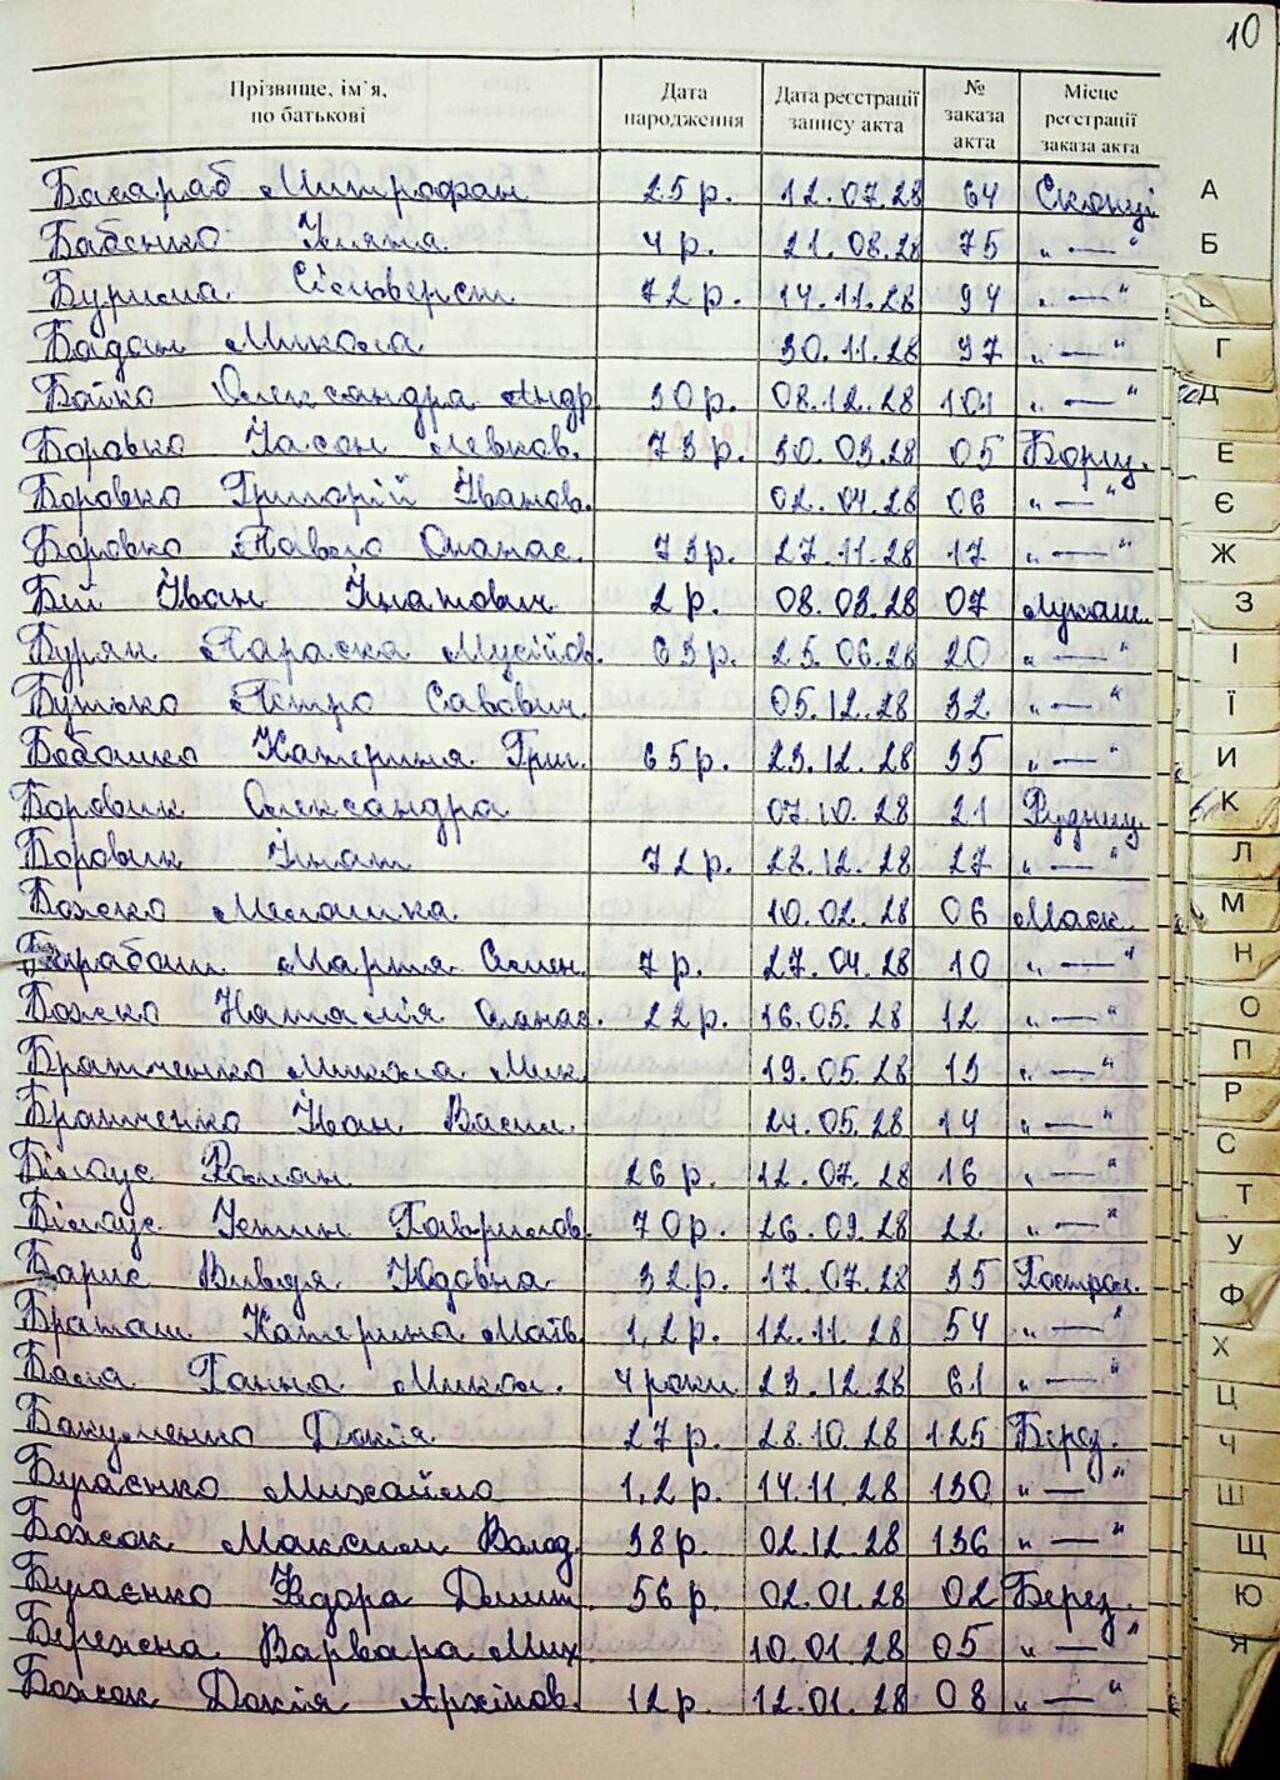 10
Прізвище, ім'я, по батькові | Дата народження | Дата реєстрації запису акта | № заказа акта | Місце реєстрації заказа акта
Басараб Митрофан 25 р. 12.07.28 64 Сконці
Бабенко Уляна 4 р. 21.08.28 75 „—“
Бурима Сільверст 72 р. 14.11.28 94 „—“
Бадан Микола 30.11.28 97 „—“
Бойко Олександра Андр 30 р. 08.12.28 101 „—“
Боровко Іасон Левков. 73 р. 30.03.28 05 Борщ.
Боровко Григорій Іванов. 02.04.28 06 „—“
Боровко Павло Опанас. 73 р. 27.11.28 17 „—“
Бій Іван Гнатович 2 р. 08.03.28 07 Лукаш.
Бурян Параска Мусійов. 63 р. 25.06.28 20 „—“
Бутько Петро Савович. 05.12.28 32 „—“
Бобошко Катерина Григ. 65 р. 23.12.28 35 „—“
Боровик Олександра 07.10.28 21 Рудниц
Боровик Ігнат 72 р. 28.12.28 27 „—“
Божко Мелашка 10.02.28 06 Маск.
Барабаш Марія Семен. 7 р. 27.04.28 10 „—“
Божко Наталія Опанас. 22 р. 16.05.28 12 „—“
Братченко Микола Мик. 19.05.28 13 „—“
Братченко Іван Васил. 24.05.28 14 „—“
Білоус Роман 26 р. 12.07.28 16 „—“
Білоус Устин Гаврилов. 70 р. 26.09.28 22 „—“
Барис Вивдя Юдовна 32 р. 17.07.28 35 Построл.
Браташ Катерина Матв 1,2 р. 12.11.28 54 „—“
Бала Ганна Микол. 4 роки 23.12.28 61 „—“
Бакуменко Докія 27 р. 28.10.28 125 Берез.
Бугаєнко Михайло 1,2 р. 14.11.28 130 „—“
Божок Максим Волод. 38 р. 02.12.28 136 „—“
Бугаєнко Федора Дмит. 56 р. 02.01.28 02 Берез.
Бережна Варвара Мих 10.01.28 05 „—“
Божок Докія Архіпов. 12 р. 12.01.28 08 „—“
А
Б
Г
Д
Е
Є
Ж
З
І
Ї
И
К
Л
М
Н
О
П
Р
С
Т
У
Ф
Х
Ц
Ч
Ш
Щ
Ю
Я